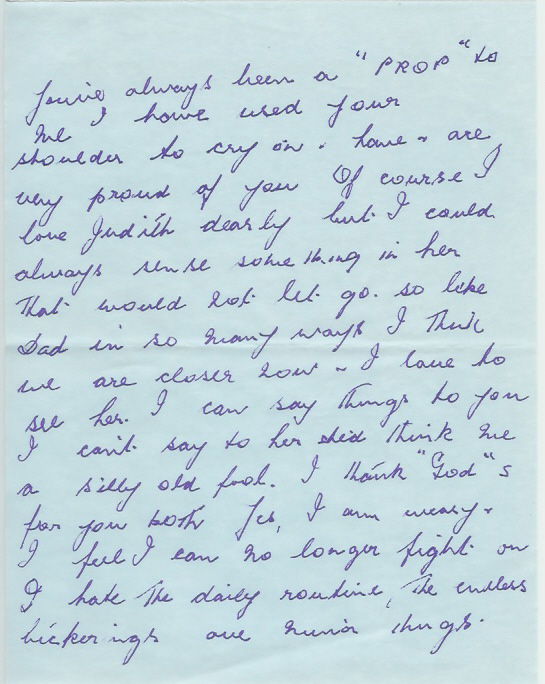 You've always been a "PROP" to
me I have used your
shoulder to cry on. have & are
very proud of you Of course I
love Judith dearly but I could
always sense something in her
that would not let go. so like
Dad in so many ways I think
we are closer now & I love to
see her. I can say things to you
I can't say to her she'd think me
a silly old fool. I thank "God"s
for you both Yes, I am weary.
I feel I can no longer fight on
I hate the daily routine, the endless
bickerings over minor things.